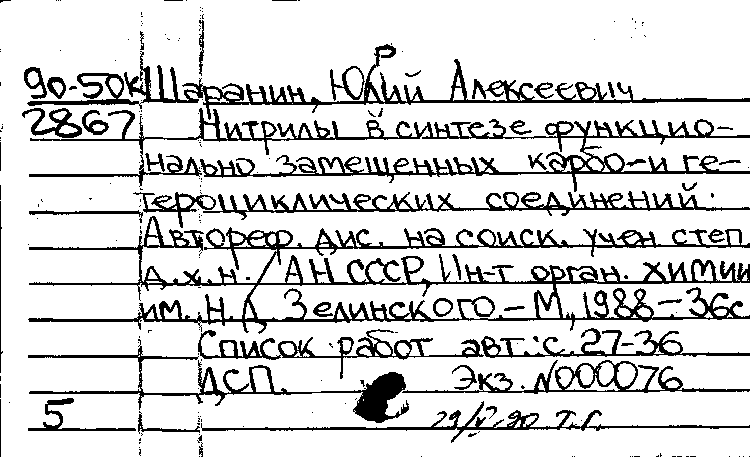 90-50к Шаранин, Юрий Алексеевич
2867 Нитрилы в синтезе функцио-
нально замещенных карбо-и ге-
тероциклических соединений:
Автореф. дис. на соиск. учен степ
д.х.н. / АН СССР, Ин-т орган. химии
им. Н.Д. Зелинского.-М., 1988-36с
Список работ авт.: с. 27-36
ДСП. Экз. N000076
5 29/V-90 Т.Г.